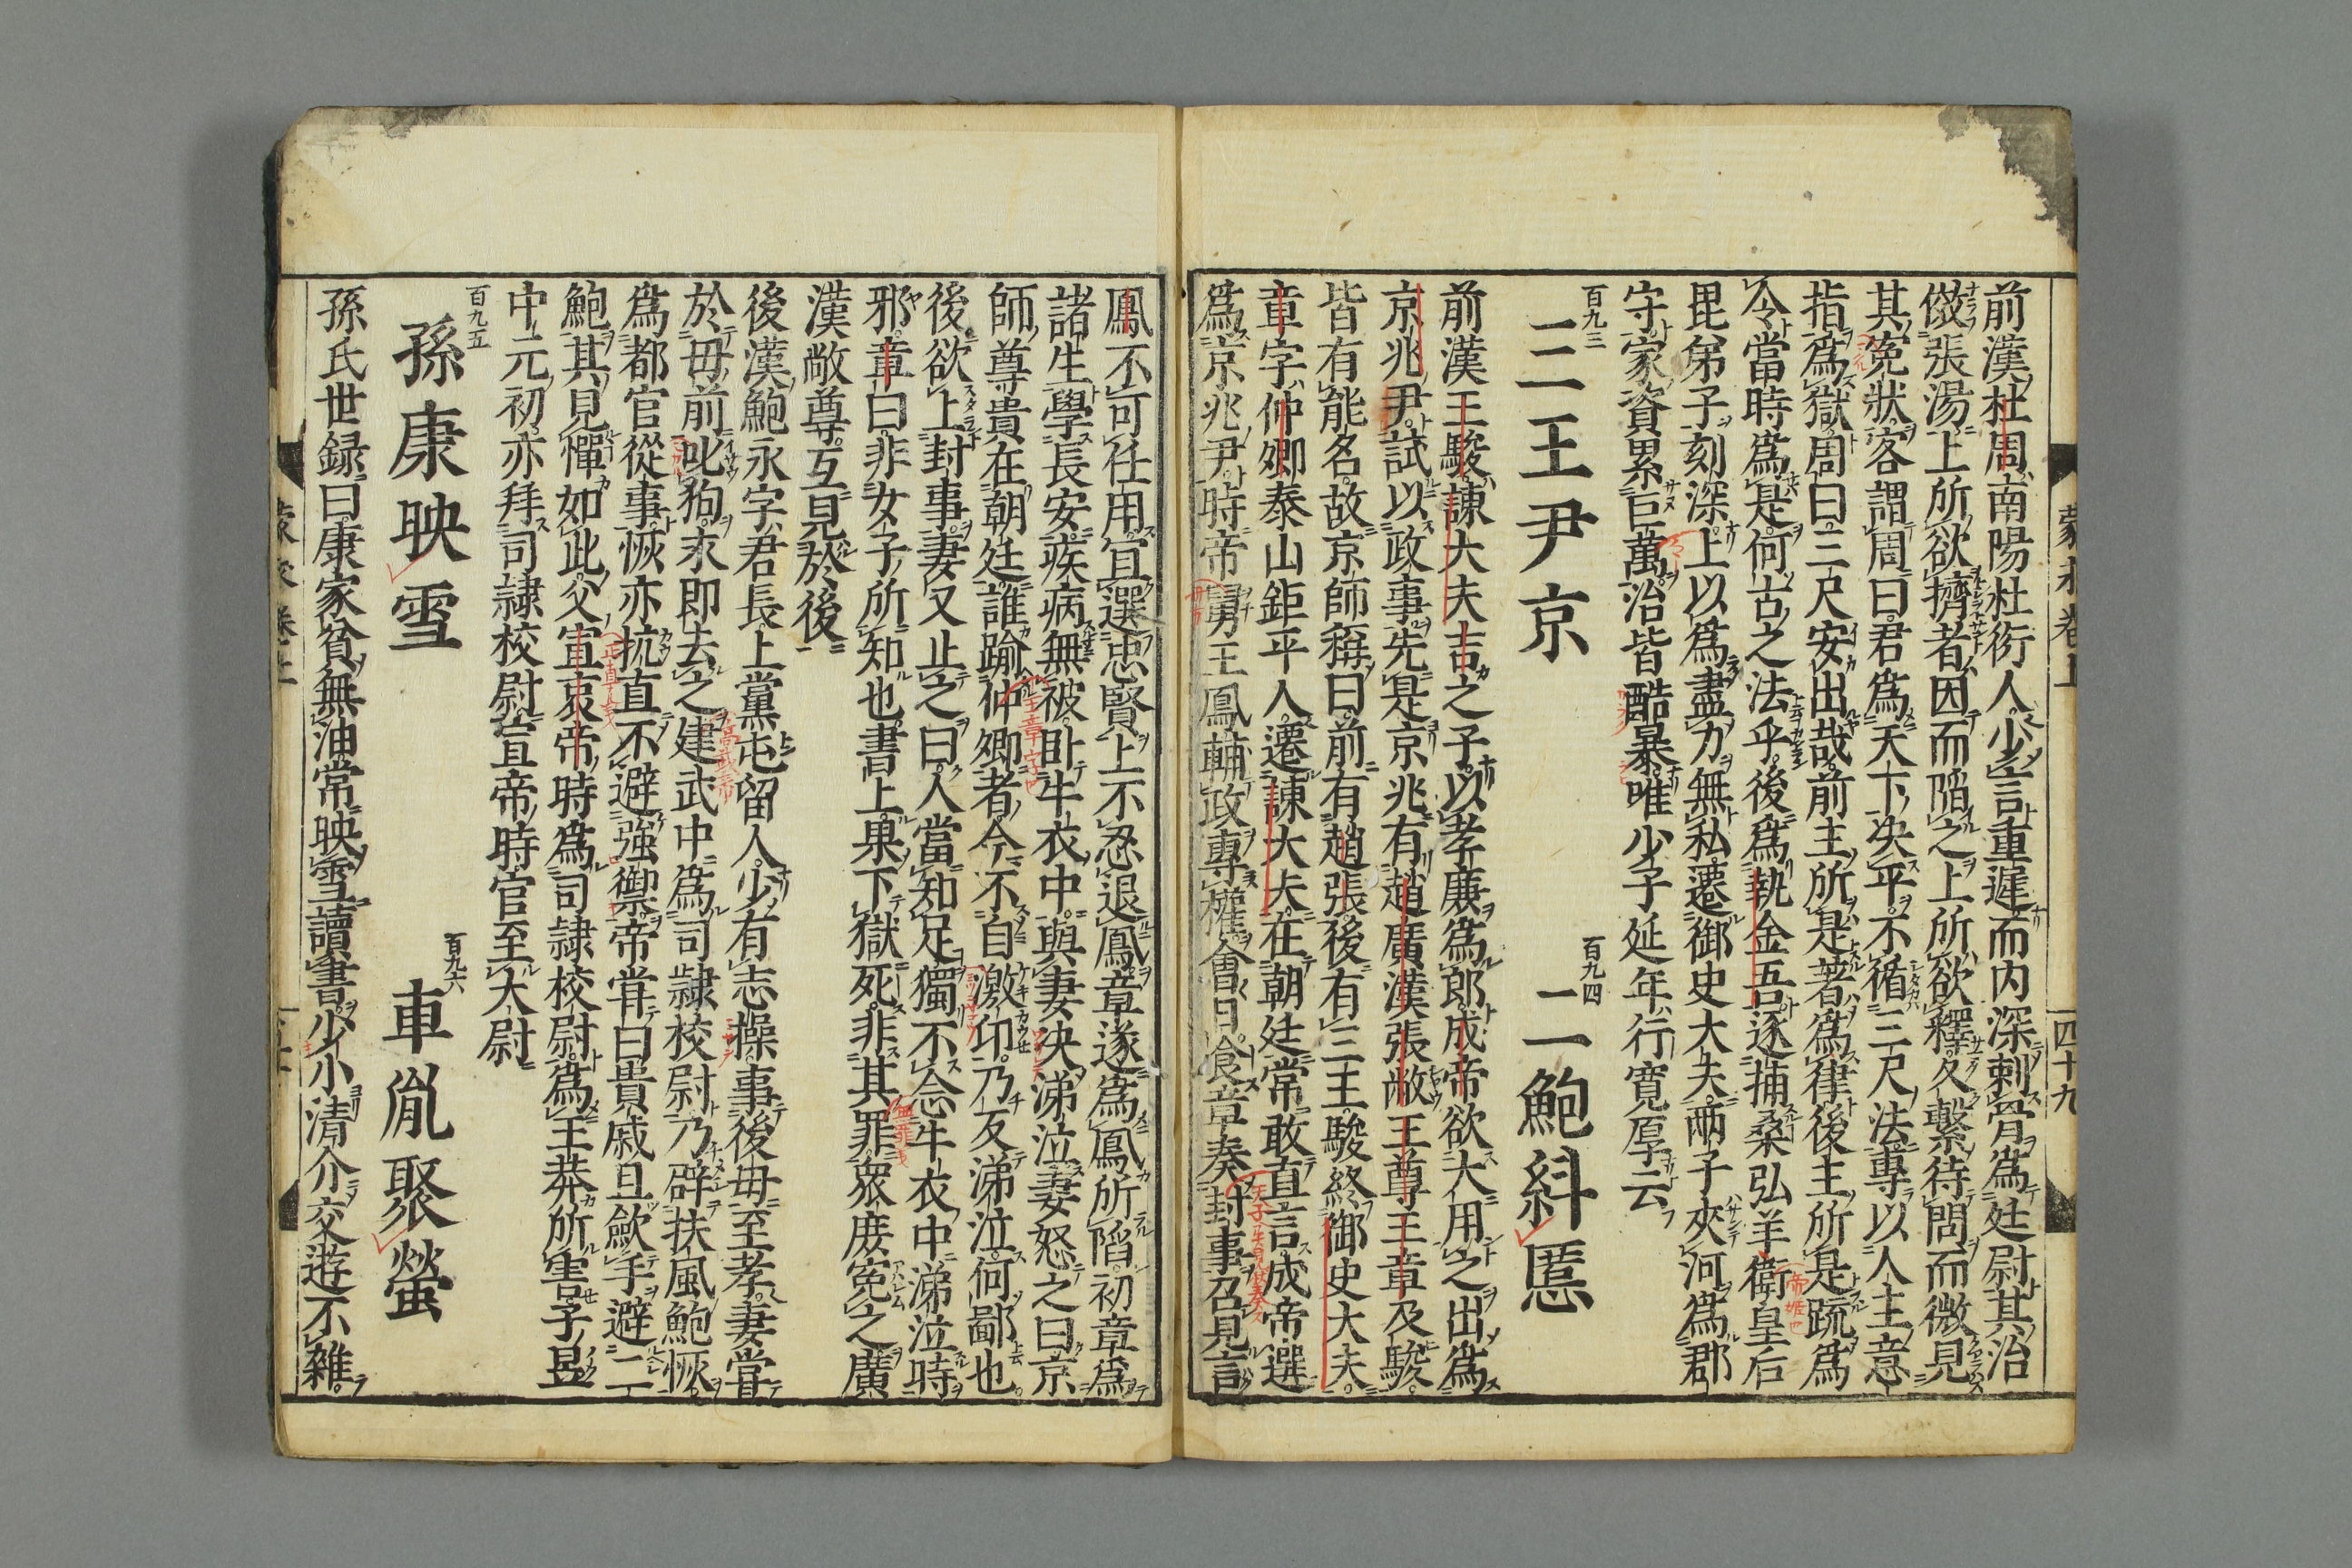 蒙求卷上
四十九
前漢杜周南陽杜衍人少言重遲而内深刺骨爲廷尉其治
倣張湯上所欲擠者因而陷之上所欲釋久繫待問而微見
其寃狀客謂周曰君爲天下决平不循三尺法專以人主意
指爲獄周曰三尺安出哉前主所是著爲律後主所是疏爲
令當時爲是何古之法乎後爲執金吾逐捕桑弘羊衛皇后
昆弟子刻深上以爲盡力無私遷御史大夫兩子夾河爲郡
守家資累巨萬治皆酷暴唯少子延年行寛厚云
百九三
三王尹京
百九四
二鮑糾慝
前漢王駿諌大夫吉之子以孝廉爲郎成帝欲大用之出爲
京兆尹試以政事先是京兆有趙廣漢張敞王尊王章及駿
皆有能名故京師稱曰前有趙張後有三王駿終御史大夫
章字仲卿泰山鉅平人遷諌大夫在朝廷常敢直言成帝選
爲京兆尹時帝舅王鳳輔政專權會日食章奏封事召見言
鳳不可任用宜選忠賢上不忍退鳳章遂爲鳳所陷初章爲
諸生學長安疾病無被卧牛衣中與妻决涕泣妻怒之曰京
師尊貴在朝廷誰踰仲卿者今不自激卬乃反涕泣何鄙也
後欲上封事妻又止之曰人當知足獨不念牛衣中涕泣時
邪章曰非女子所知也書上果下獄死非其罪衆庻寃之廣
漢敞尊互見於後
後漢鮑永字君長上黨屯留人少有志操事後母至孝妻甞
於母前叱狗永即去之建武中爲司隷校尉乃辟扶風鮑恢
爲都官從事恢亦抗直不避強禦帝甞曰貴戚且歛手避二
鮑其見憚如此父宣哀帝時爲司隷校尉爲王莽所害子昱
中元初亦拜司隷校尉宣帝時官至大尉
百九五
孫康映雪
百九六
車胤聚螢
孫氏世録曰康家貧無油常映雪讀書少小清介交遊不雜